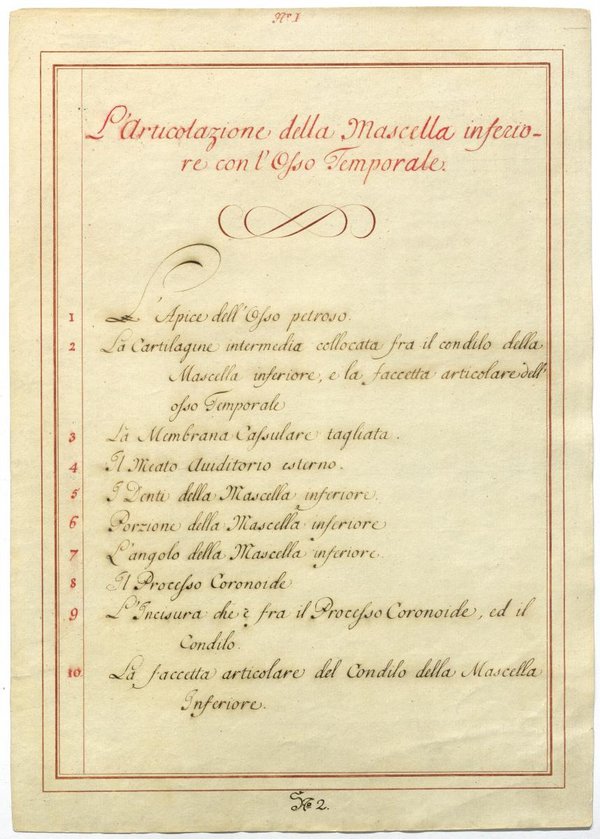 Nº I
L'Articolazione della Mascella inferio-
re con l'Osso Temporale.
1 L'Apice dell'Osso petroso.
2 La Cartilagine intermedia collocata fra il condilo della
Mascella inferiore, e la faccetta articolare dell'
osso Temporale
3 La Membrana Cassulare tagliata.
4 Il Meato Auiditorio esterno.
5 I Denti della Mascella inferiore.
6 Porzione della Mascella inferiore
7 L'angolo della Mascella inferiore.
8 Il Processo Coronoide
9 L'Incisura che è fra il Processo Coronoide, ed il
Condilo.
10 La faccetta articolare del Condilo della Mascella
Inferiore.
Nº 2.